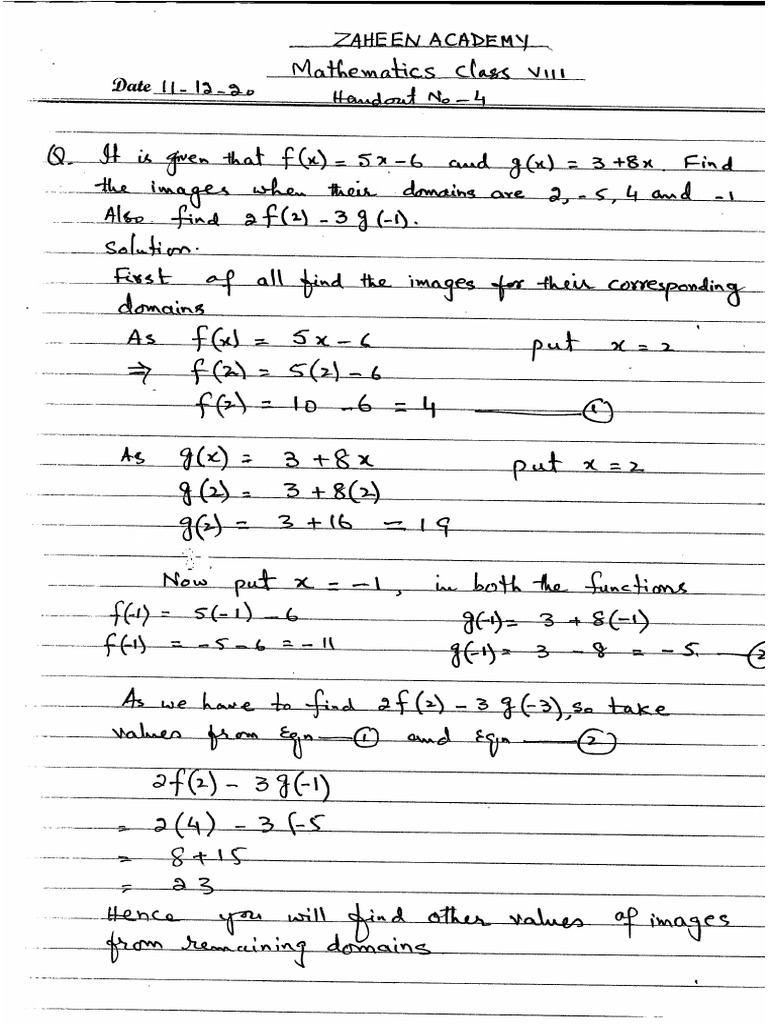 ZAHEEN ACADEMY
Mathematics Class VIII
Date 11-12-20
Handout No-4
Q. It is given that f(x) = 5x-6 and g(x) = 3+8x. Find
the images when their domains are 2, -5, 4 and -1
Also find 2f(2) - 3g(-1).
Solution.
First of all find the images for their corresponding
domains
As f(x) = 5x-6 put x=2
⇒ f(2) = 5(2)-6
f(2) = 10 -6 = 4 ——— ①
As g(x) = 3+8x put x=2
g(2) = 3+8(2)
g(2) = 3+16 = 19
Now put x = -1, in both the functions
f(-1) = 5(-1) -6 g(-1) = 3 + 8(-1)
f(-1) = -5-6 = -11 g(-1) = 3 - 8 = -5. — ②
As we have to find 2f(2) - 3g(-3), so take
values from Eqn — ① and Eqn ——— ②
2f(2) - 3g(-1)
= 2(4) - 3(-5
= 8+15
= 23
Hence you will find other values of images
from remaining domains